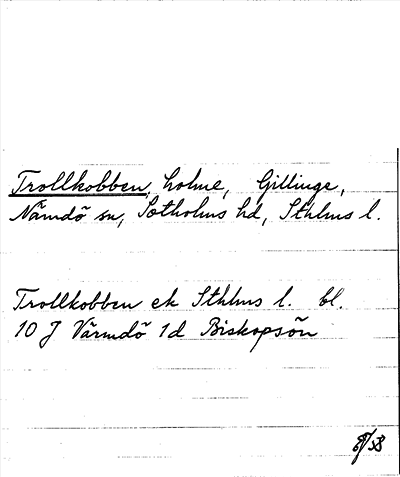 Trollkobben, holme, Gillinge,
Nämdö sn, Sotholms hd, Sthlms l.
Trollkobben ek Sthlms l. bl.
10 J Värmdö 1d Biskopsön